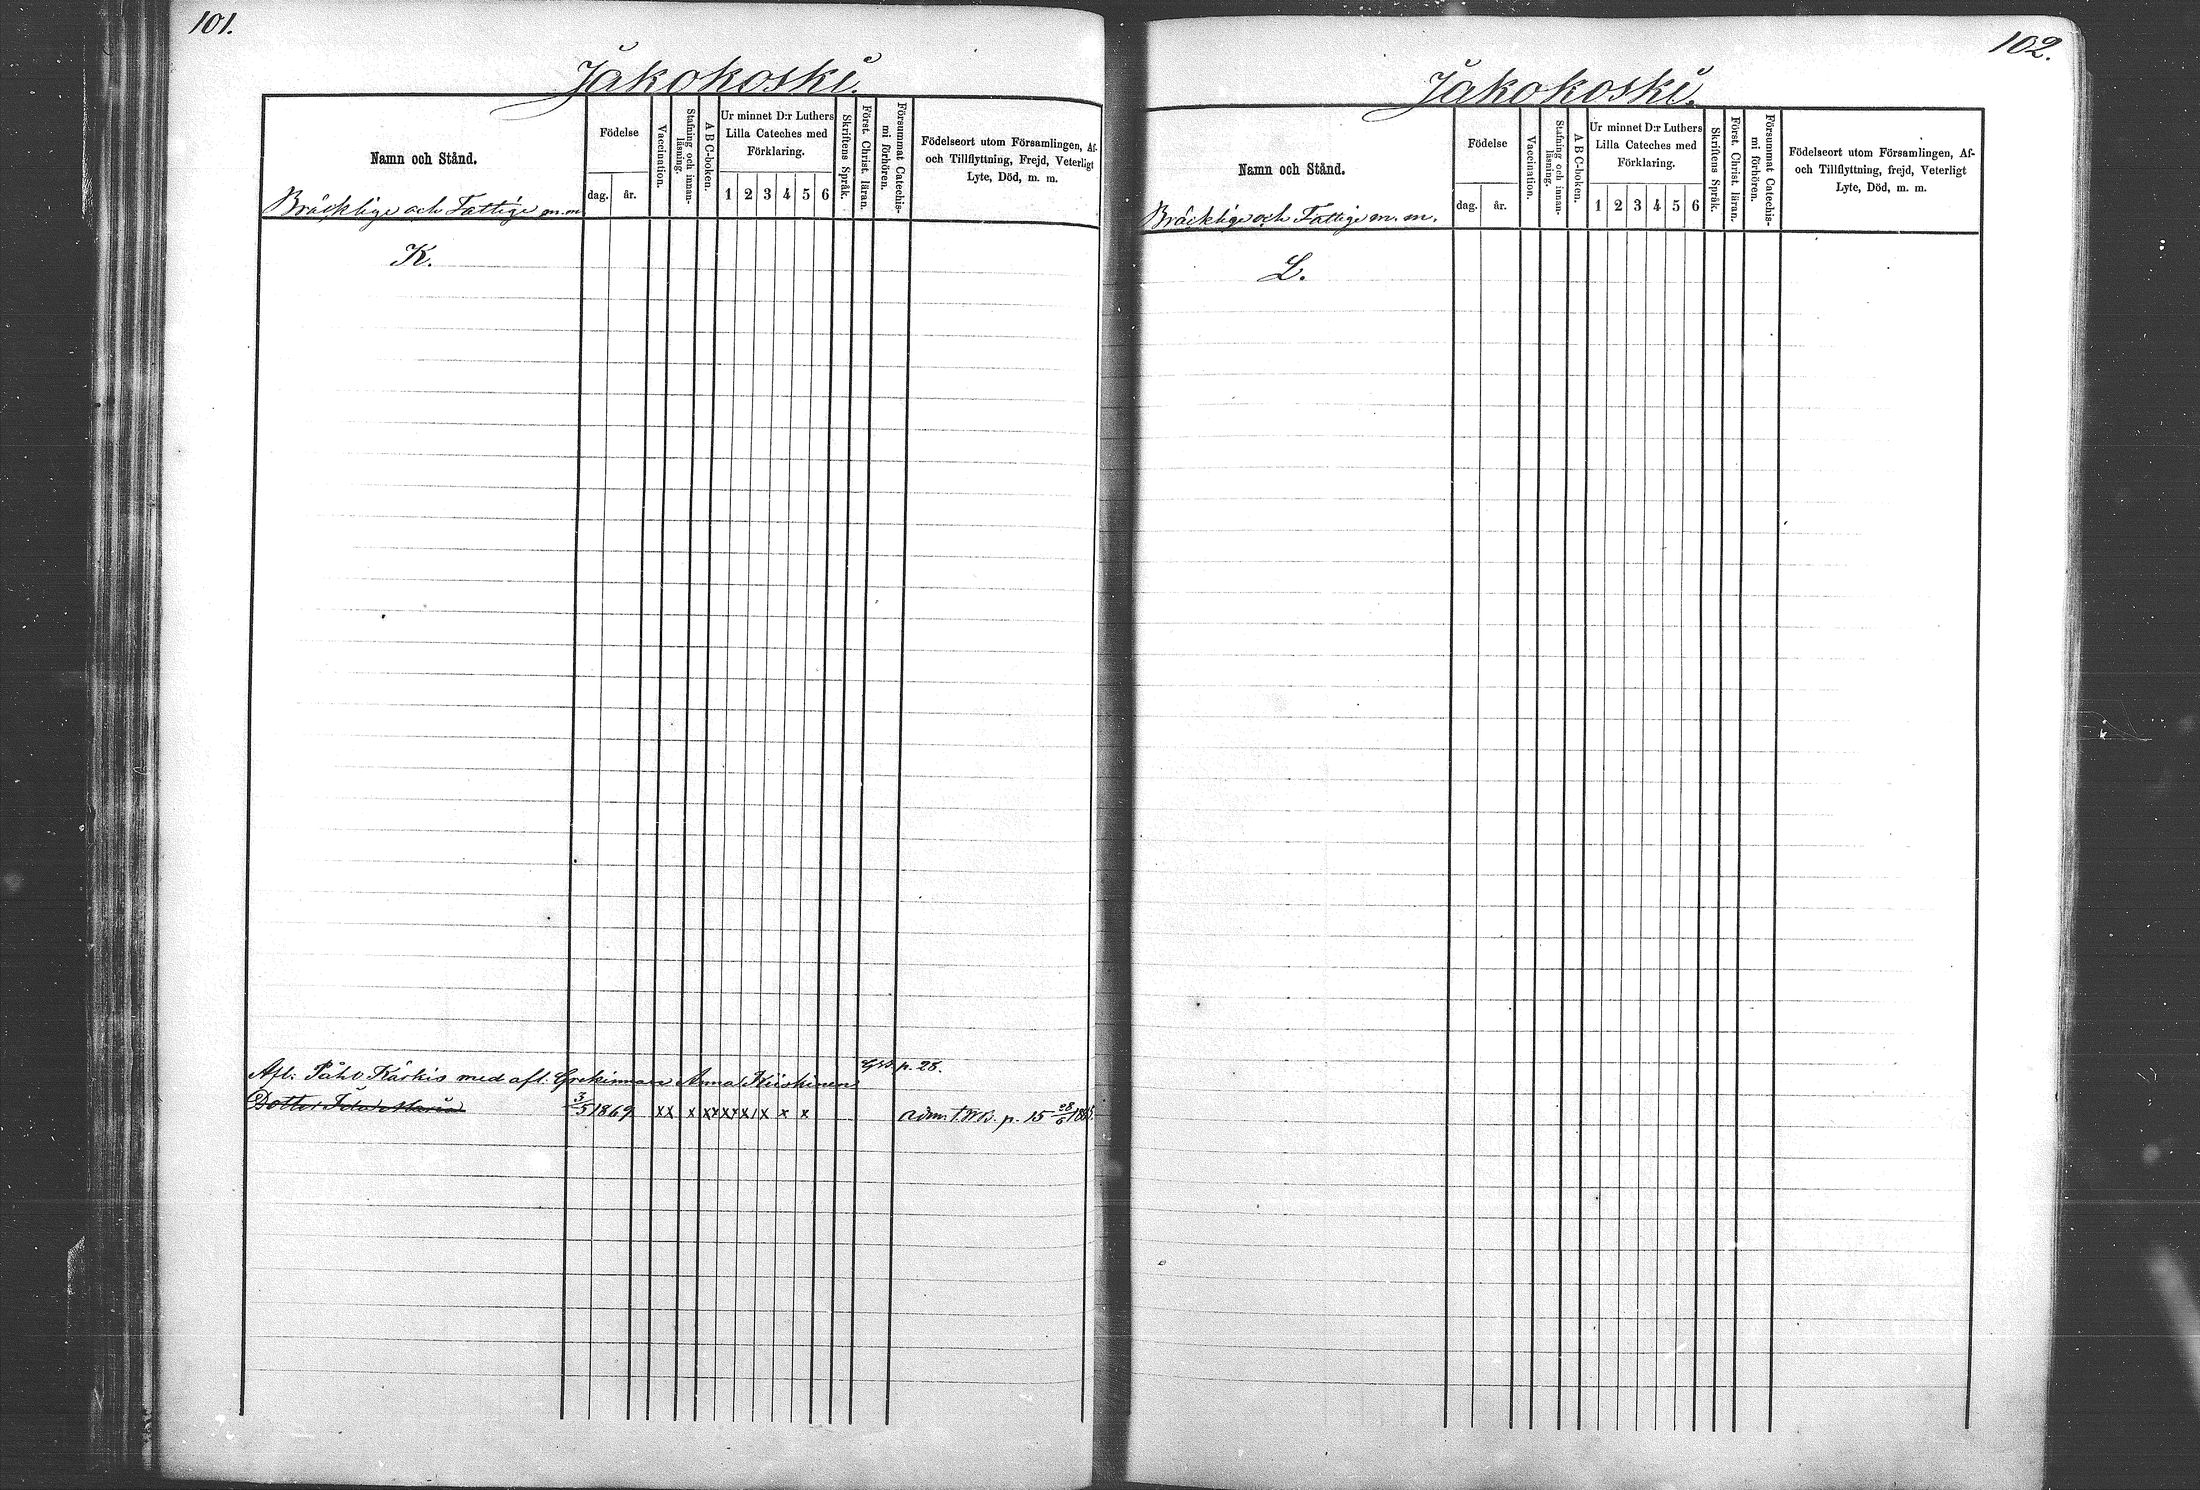 101.
Jakokoski.
Namn och Stånd.
Bräcklige och Fattige m.m.
Födelse
dag.
år.
Vaccination.
Stafning och innan-
läsning.
A B C-boken.
Ur minnet D:r Luthers
Lilla Cateches med
Förklaring.
1 2 3 4 5 6
Skriftens Språk.
Först. Christ. läran.
Försummat Catechis-
mi förhören.
Födelseort utom Församlingen, Af-
och Tillflyttning, Frejd, Veterligt
Lyte, Död, m. m.
K.
Afl: Påhl Kärkis med afl. Grekinnan Anna Kiiskinen p. 28.
Dotter Maria 3/5 1869 xx x xx xx x x x x p. 15
102.
Jakokoski.
Namn och Stånd.
Bräcklige och Fattige m. m.
Födelse
dag.
år.
Vaccination.
Stafning och innan-
läsning.
A B C-boken.
Ur minnet D:r Luthers
Lilla Cateches med
Förklaring.
1 2 3 4 5 6
Skriftens Språk.
Först. Christ. läran.
Försummat Catechis-
mi förhören.
Födelseort utom Församlingen, Af-
och Tillflyttning, frejd, Veterligt
Lyte, Död, m. m.
L.